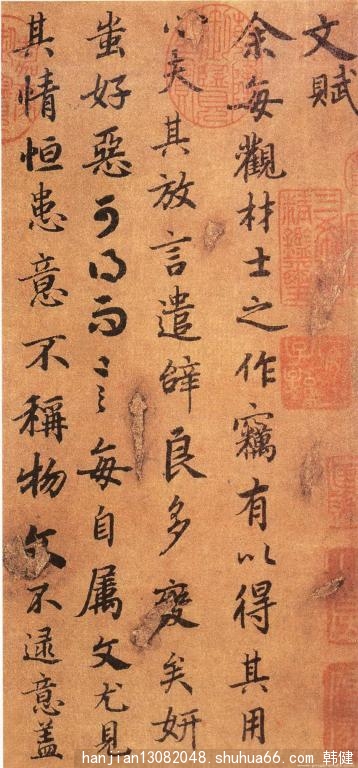 文賦
余每觀材士之作竊有以得其用
心夫其放言遣辭良多變矣妍
蚩好惡可得而言每自屬文尤見
其情恒患意不稱物文不逮意盖
三希堂精鑑璽
宜子孫
hanjian13082048.shuhua66.com 韩健